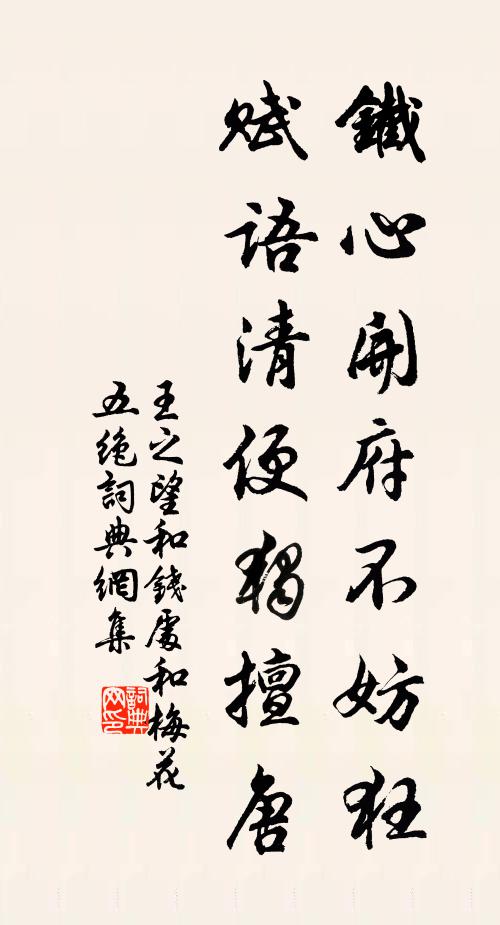 鐵心開府不妨狂
賦語清便獨擅唐
王之望和錢處和梅花
五絕詞典網集
詞典
网印